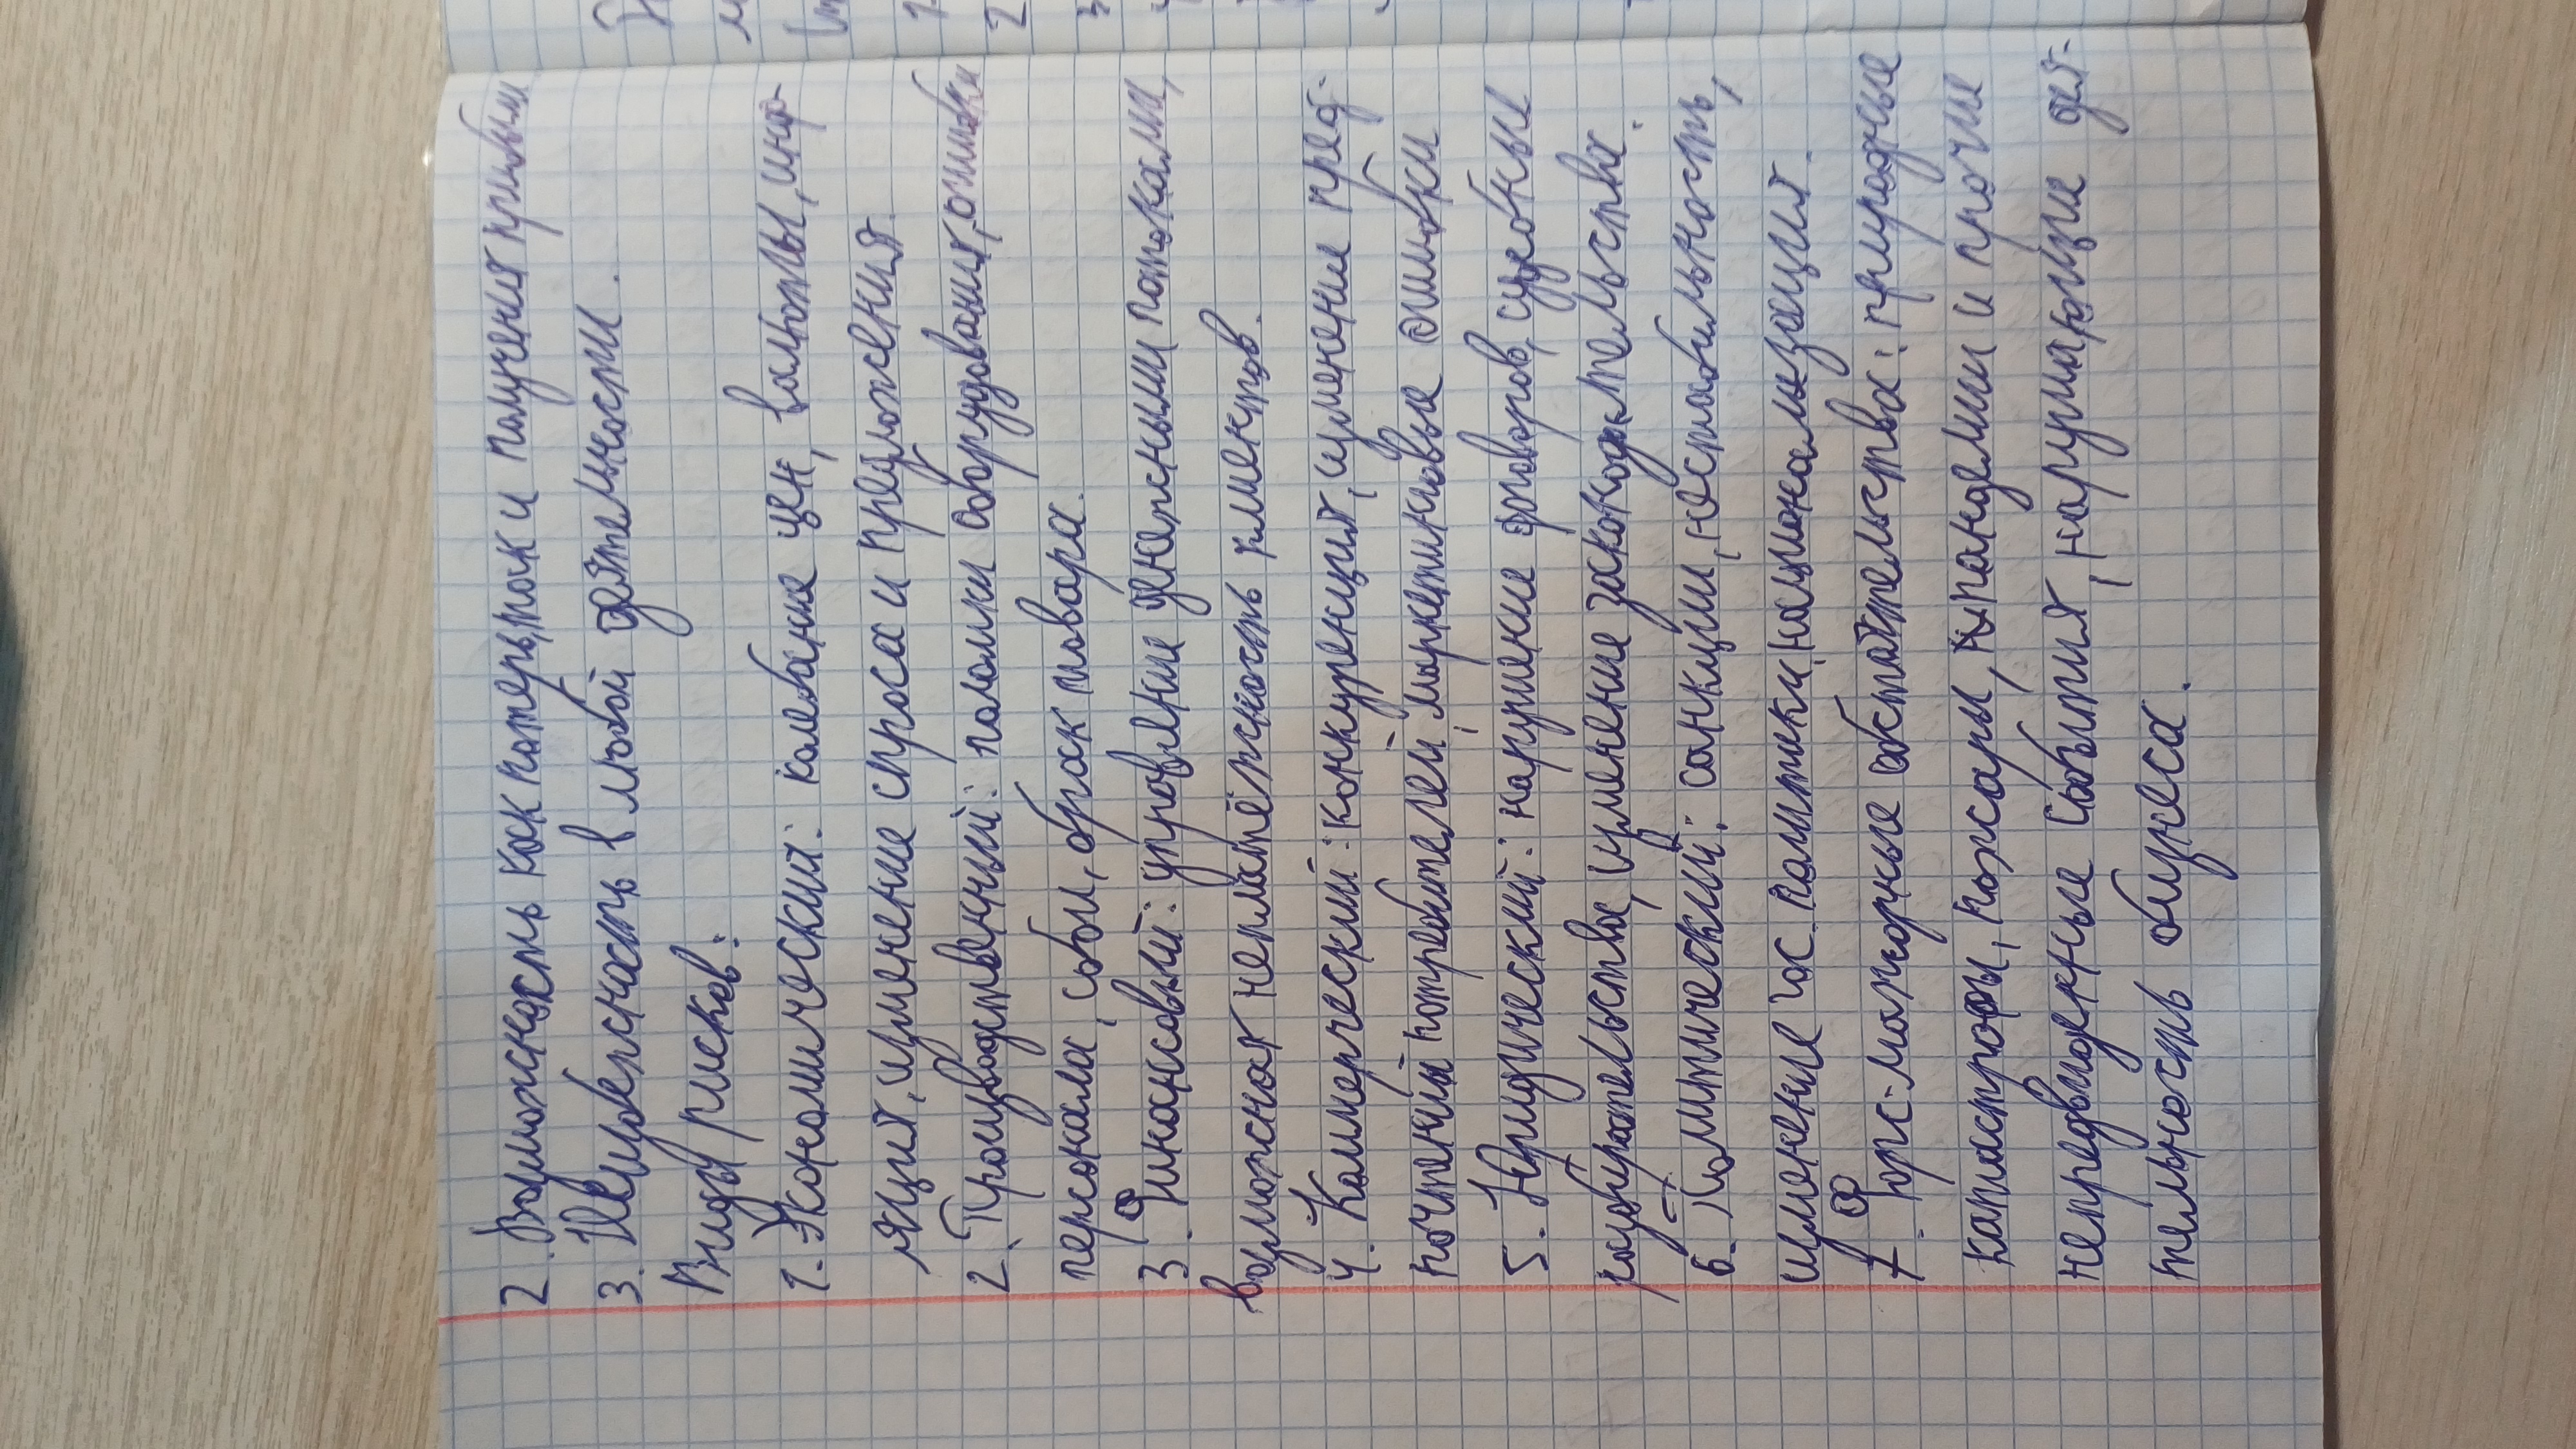 2. Возможность как потерь, так и получения прибыли
3. Неизбежность в любой деятельности.
Виды рисков:
1. Экономический: колебание цен, валюты, инф-
ляция, изменение спроса и предложения.
2. Производственный: поломки оборудования, ошибки
персонала, сбои, брак товара.
3. Финансовый: управление денежными потоками,
возможная неплатёжность клиентов.
4. Коммерческий: конкуренция, изменение пред-
почтений потребителей, маркетинговые ошибки
5. Юридический: нарушение договоров, судебные
разбирательства, изменение законодательства.
6. Политический: санкции, нестабильность,
изменение гос. политики, национализация.
7. Форс-мажорные обстоятельства: природные
катастрофы, пожары, пандемии и прочие
непредвиденные события, нарушающие дея-
тельность бизнеса.